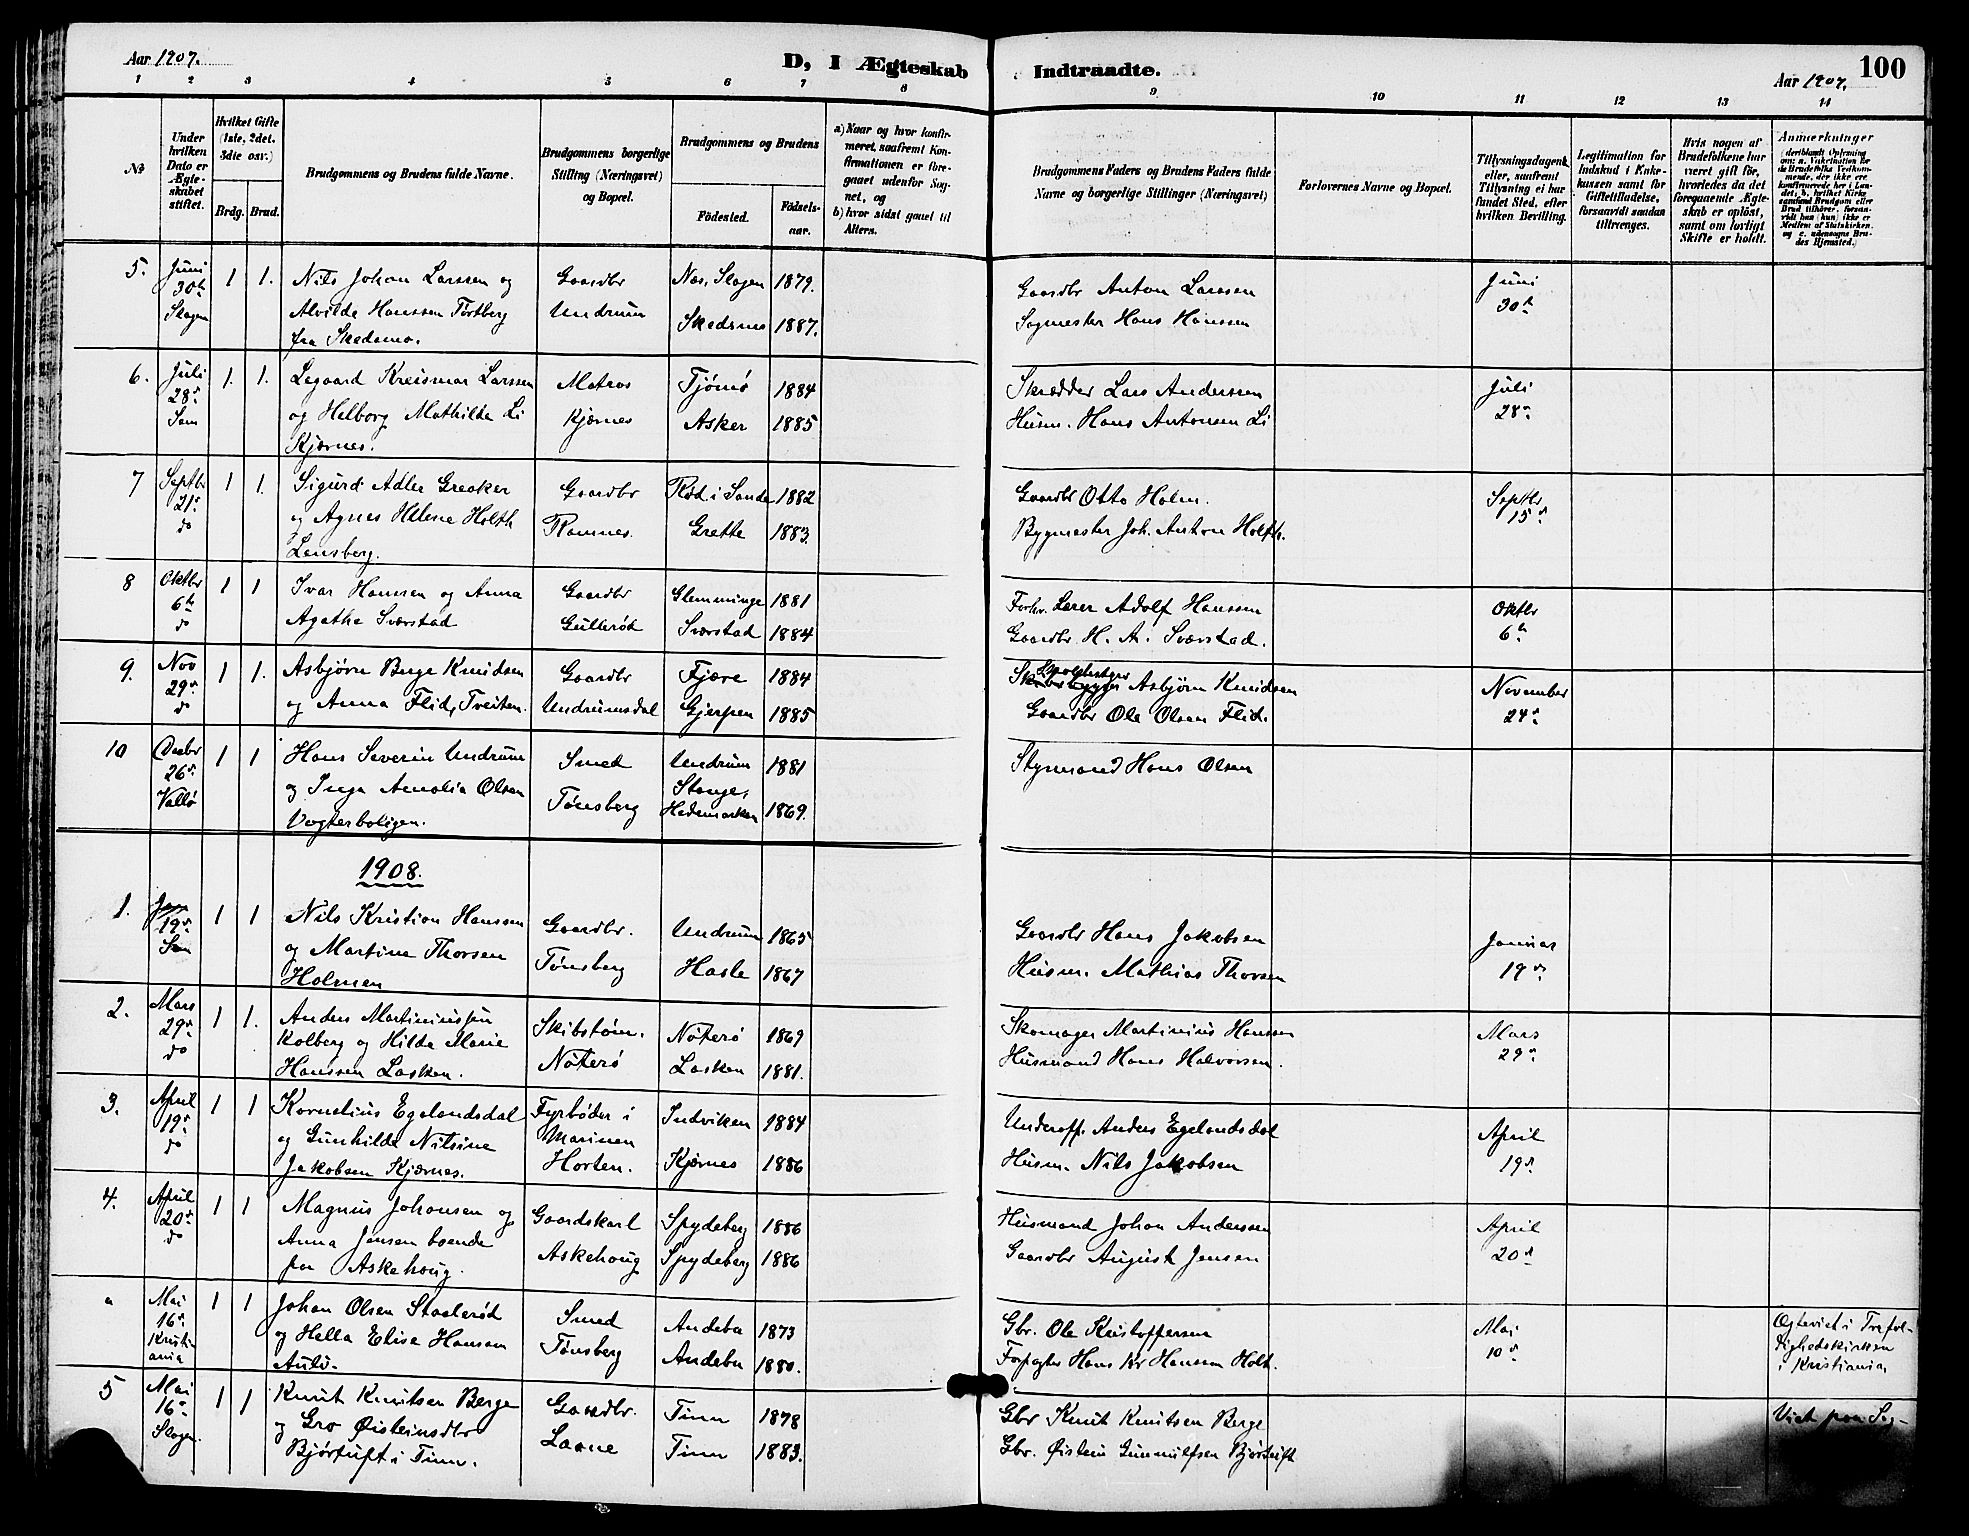 Aar 1907.
D, I Ægteskab Indtraadte.
Aar 1907.
100
1 2 3 4 5 6 7 8 9 10 11 12 13 14
No
Under hvilken Dato er Ægteskabet stiftet.
Hvilket Gifte (1ste, 2det, 3die osv.)
Brdg. Brud.
Brudgommens og Brudens fulde Navne.
Brudgommens borgerlige Stilling (Næringsvei) og Bopæl.
Brudgommens og Brudens
Fødested.
Fødselsaar.
a) Naar og hvor konfirmeret, saafremt Konfirmationen er foregaaet udenfor Sognet, og
b) hvor sidst gaaet til Alters.
Brudgommens Faders og Brudens Faders fulde Navne og borgerlige Stillinger (Næringsvei)
Forlovernes Navne og Bopæl.
Tillysningsdagen eller, saafremt Tillysning ei har fundet Sted, efter hvilken Bevilling.
Legitimation for Indskud i Enkekassen samt for Giftetilladelse, forsaavidt saadan tiltrænges.
Hvis nogen af Brudefolkene har været gift før, hvorledes da det foregaaende Ægteskab er opløst, samt om lovligt Skifte er holdt.
Anmærkninger
5. Juni 30te Slagen 1 1. Nils Johan Larssen og Gaardbr Næs, Slagen 1879. Gaardbr Anton Larssen Juni
Alvilde Hanssen Tortberg Undrum Skedsmo 1887. Sagmester Hans Hanssen 30te
fra Skedsmo.
6. Juli 28de Sem 1. 1. Legaard Kreismar Larssen Matros Tjømø 1884 Skrædder Lars Anderssen Juli
og Helborg Mathilde Li Kjærnes Asker 1885 Husm. Hans Antonsen Li 28de
Kjærnes.
7 Septbr 21de do 1 1. Sigurd Adler Greaker Gaardbr Rød i Sande 1882 Gaardbr Otto Holm. Septbr
og Agnes Helene Holth Ramnes. Grette 1883. Bygmester Joh. Anton Holth. 15de
Lensberg.
8 Oktbr 6te do 1 1 Ivar Hanssen og Anna Gaardbr Glemminge 1881 Forhv. Lærer Adolf Hanssen Oktbr
Agathe Sværstad Gullerød Sværstad 1884 Gaardbr H. A. Sværstad. 6te
9. Nov 29de do 1 1. Asbjørn Berge Knudsen Gaardbr Fjære 1884 Asbjørn Knudsen November
og Anna Flid, Tveiten. Undrumsdal Gjerpen 1885 Gaardbr Ole Olsen Flid. 24de
10 Decbr 26de Vallø 1 1 Hans Severin Undrum Smed Undrum 1881 Styrmand Hans Olsen
og Inga Amalia Olsen Tønsberg Stange, Hedemarken 1869.
Vogterboligen.
1908.
1. Jan 19de Sem 1 1 Nils Kristian Hanssen Gaardbr. Undrum 1865 Gaardbr Hans Jakobsen Januar
og Martine Thorsen Tønsberg Hasle 1867 Husm. Mathias Thorsen 19de
Holmen
2. Mars 29de do 1 1. Anders Martiniussen Skibstøm. Nøterø 1869 Skomager Martinius Hanssen Mars
Kolberg og Hilda Marie Nøterø Lasken 1881. Husmand Hans Halvorsen. 29de
Hanssen Lasken.
3. April 19de do 1 1 Kornelius Egelandsdal Fyrbøder i Indviken 1884 Underoff. Anders Egelandsdal April
og Gunhilde Nilsine Marinen
Jakobsen Kjærnes. Horten. Kjærnes 1886 Husm. Nils Jakobsen 19de
4. April 20de do 1 1 Magnus Johansen og Gaardskarl Spydeberg 1886 Husmand Johan Anderssen April
Anna Jensen boende Askehoug Spydeberg 1886 Gaardbr August Jensen 20de
paa Askehoug.
a Mai 16de Kristiania 1 1 Johan Olsen Staalerød Smed Andebu 1873 Gbr. Ole Kristoffersen Mai Ægteviet i Trefol-
og Hella Elise Hansen Tønsberg Andebu 1880. Forpagter Hans Kr Hanssen Holt. 10de dighedskirken
Auli. i Kristiania
5 Mai 16de Slagen. 1 1 Knut Knutsen Berge Gaardbr. Tinn 1878 Gbr Knut Knutsen Berge Viet paa Sg-
og Gro Øisteinsdtr Laane Tinn 1883. Gbr. Øistein Gunnulfsen Bjørtuft
Bjørtuft i Tinn.